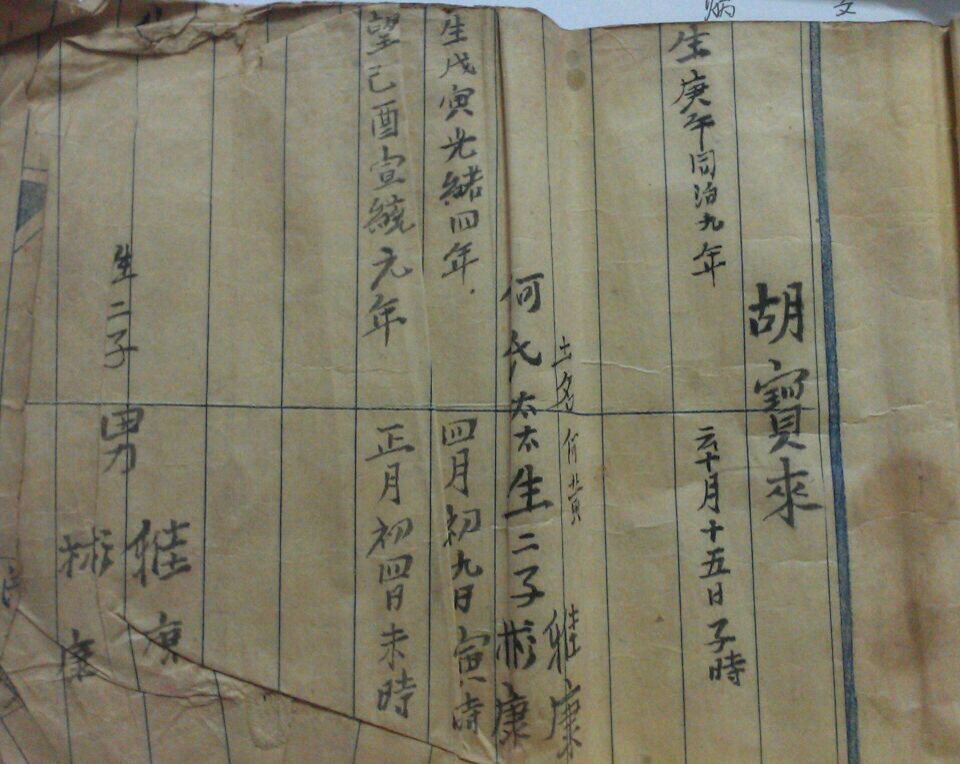 胡寶來
生庚午同治九年 十月十五日子時
土名何黄
何氏太太生二子雅康
彬康
生戊寅光緒四年 四月初九日寅時
望己酉宣統元年 正月初四日未時
生二子 男 雅康
彬康